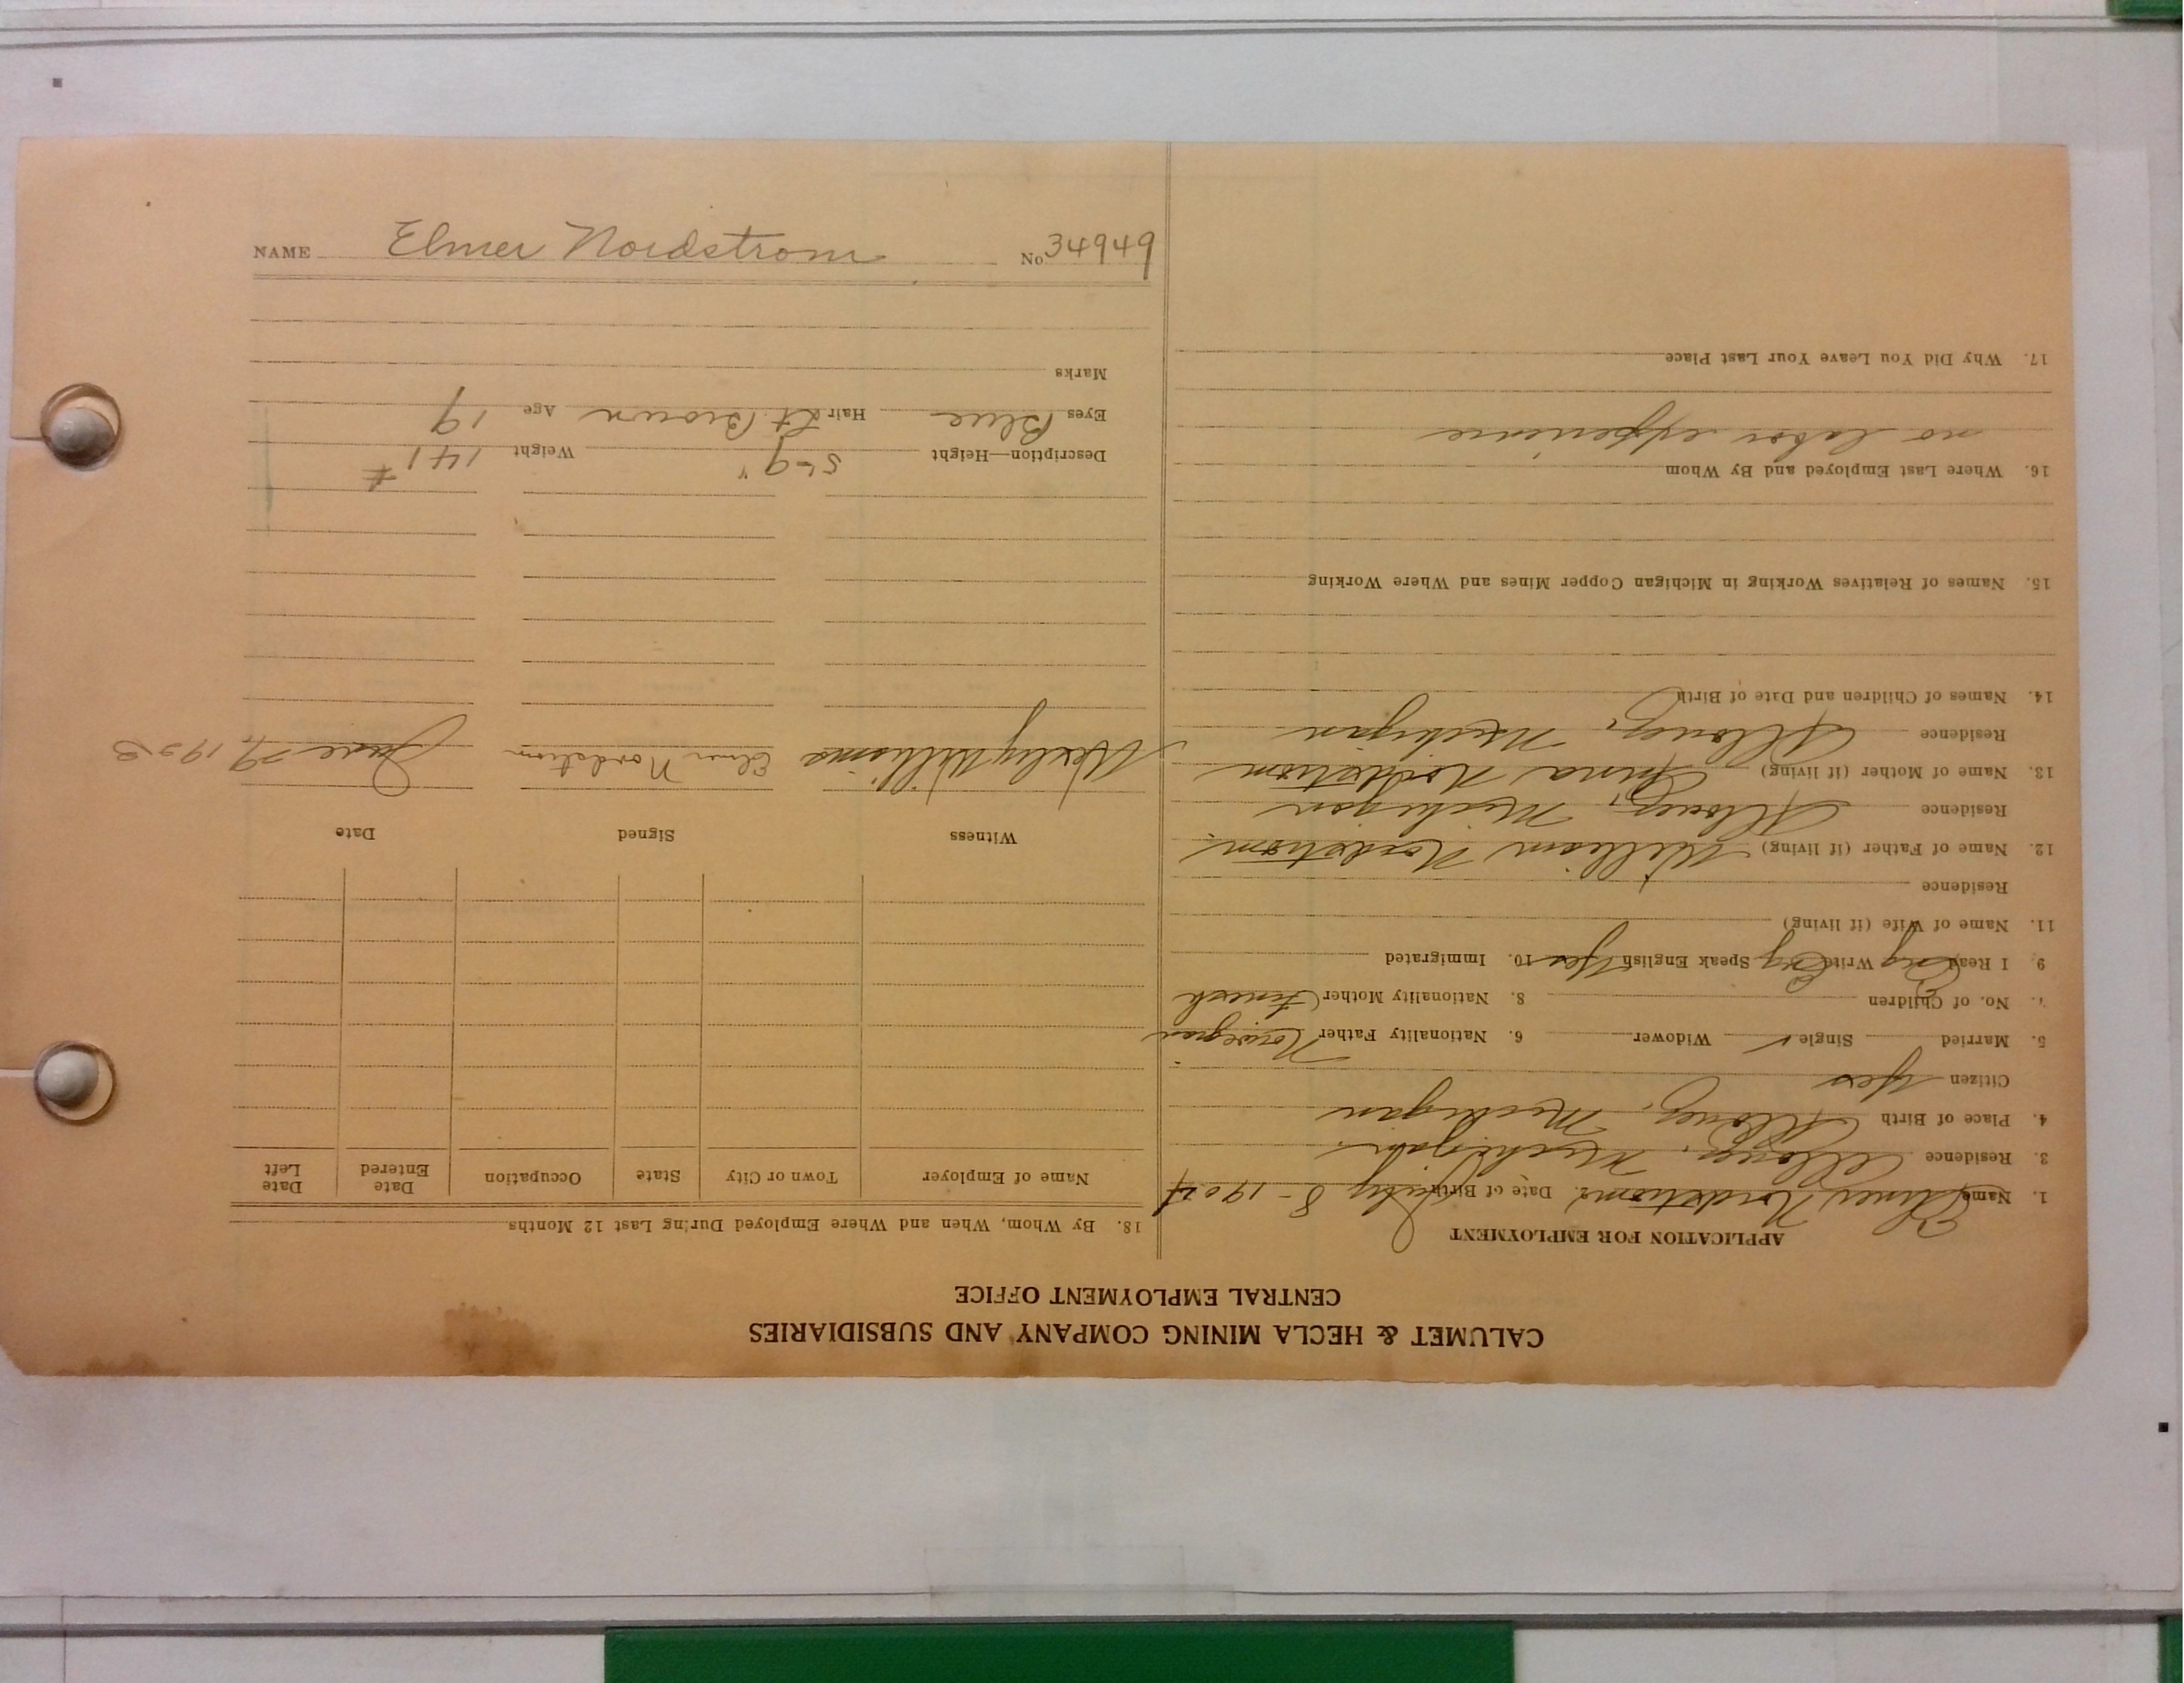 CALUMET & HECLA MINING COMPANY AND SUBSIDIARIES
CENTRAL EMPLOYMENT OFFICE
APPLICATION FOR EMPLOYMENT
1. Name Elmer Nordstrom 2. Date of Birth July 8-1904
3. Residence Allouez, Michigan
4. Place of Birth Allouez, Michigan
Citizen yes
5. Married Single ✓ Widower 6. Nationality Father Norwegian
7. No. of Children 8. Nationality Mother Finnish
9. I Read Eng Write Eng Speak English Yes 10. Immigrated
11. Name of Wife (if living)
Residence
12. Name of Father (if living) William Nordstrom
Residence Allouez, Michigan
13. Name of Mother (if living) Anna Nordstrom
Residence Allouez, Michigan
14. Names of Children and Date of Birth
15. Names of Relatives Working in Michigan Copper Mines and Where Working
16. Where Last Employed and By Whom
no labor experience
17. Why Did You Leave Your Last Place
18. By Whom, When and Where Employed During Last 12 Months
Name of Employer Town or City State Occupation Date Entered Date Left
Witness Signed Date
Williams Elmer Nordstrom June 29, 1923
Description—Height 5-9" Weight 141 #
Eyes Blue Hair Lt Brown Age 19
Marks
NAME Elmer Nordstrom No 34949